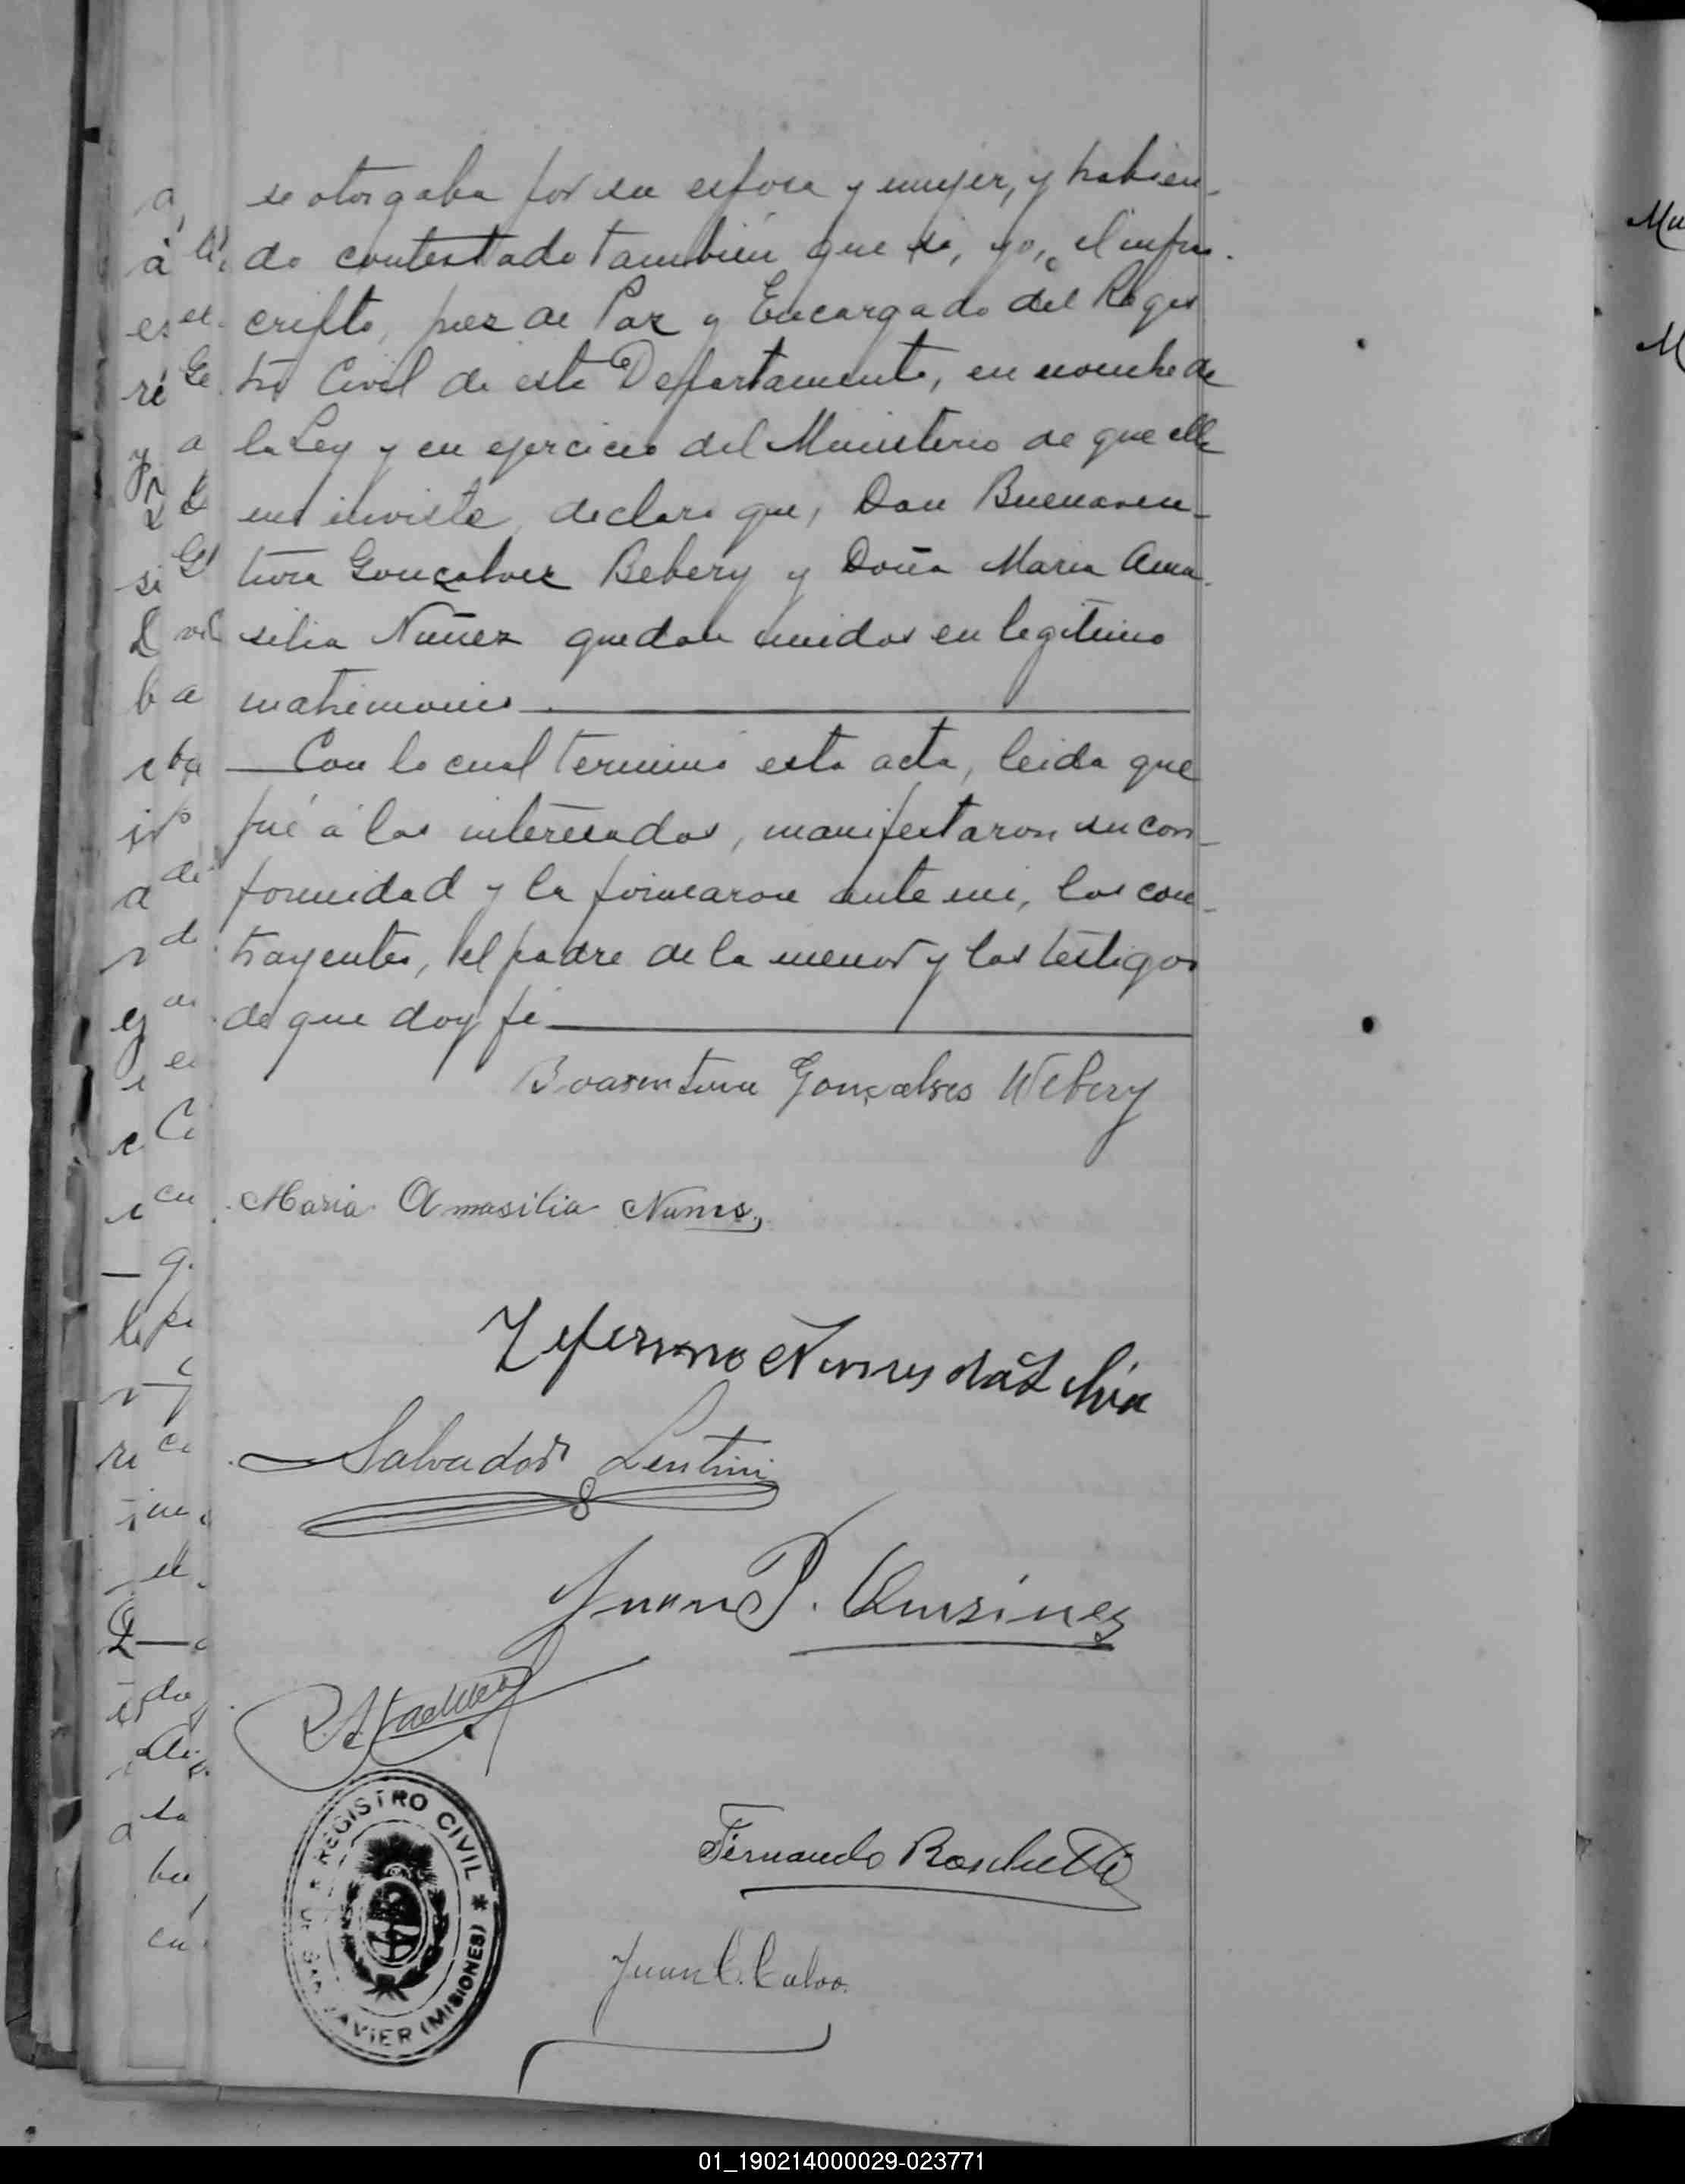 se otorgaba por su esposa y mujer, y habien-
do contestado tambien que si, yo, el infras-
cripto, Juez de Paz y Encargado del Regis
tro Civil de este Departamento, en nombre de
la Ley y en ejercicio del Ministerio de que ella
me inviste, declaro que, Don Buenaven-
tura Gonçalvez Bebery y Doña Maria Ama-
silia Nuñez quedan unidos en legitimo
matrimonio
Con lo cual terminó esta acta, leida que
fué á los interesados, manifestaron su con-
formidad y la firmaron ante mi, los con-
trayentes, el padre de la menor y los testigos
de que doy fé
Boaventura Gonçalves Webery
Maria Amasilia Nunes
Zeferino Nunes
Salvador Lentini
Juan P.
REGISTRO CIVIL * SAN JAVIER (MISIONES)
Fernando Boschetti
Juan C. Calvo.
01_190214000029-023771